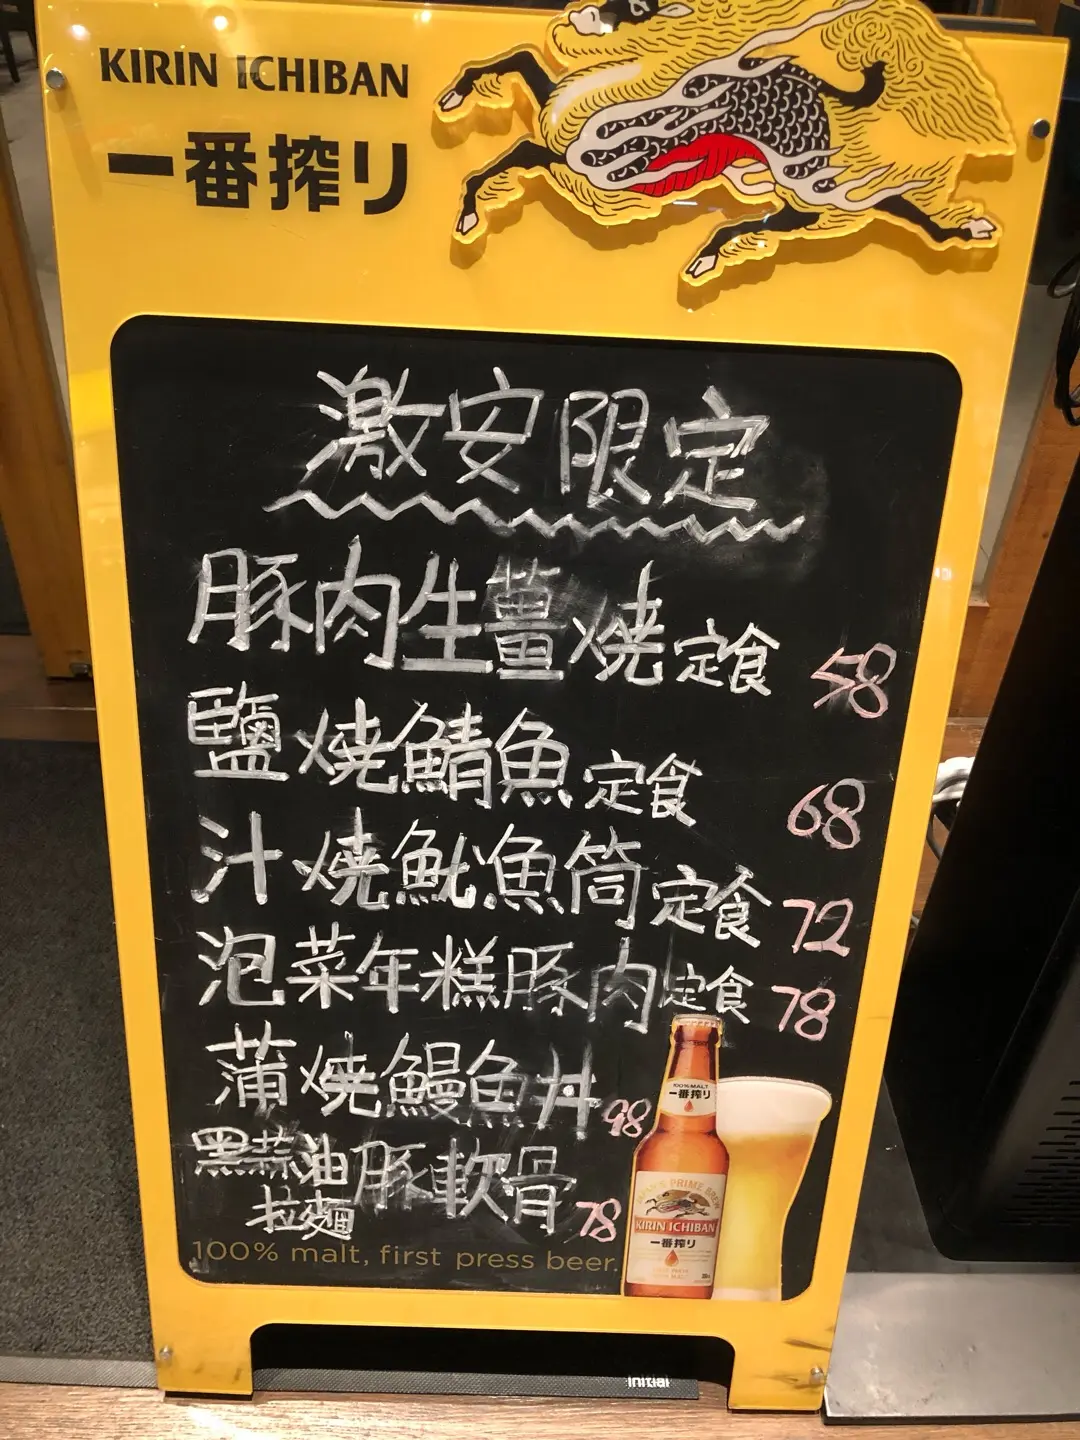 KIRIN ICHIBAN
一番搾り
激安限定
豚肉生薑燒定食 58
鹽燒鯖魚定食 68
汁燒魷魚筒定食 72
泡菜年糕豚肉定食 78
蒲燒鰻魚丼 98
黑蒜油豚軟骨
拉麵 78
100% malt, first press beer.
100% MALT
一番搾り
KIRIN ICHIBAN
一番搾り
initial